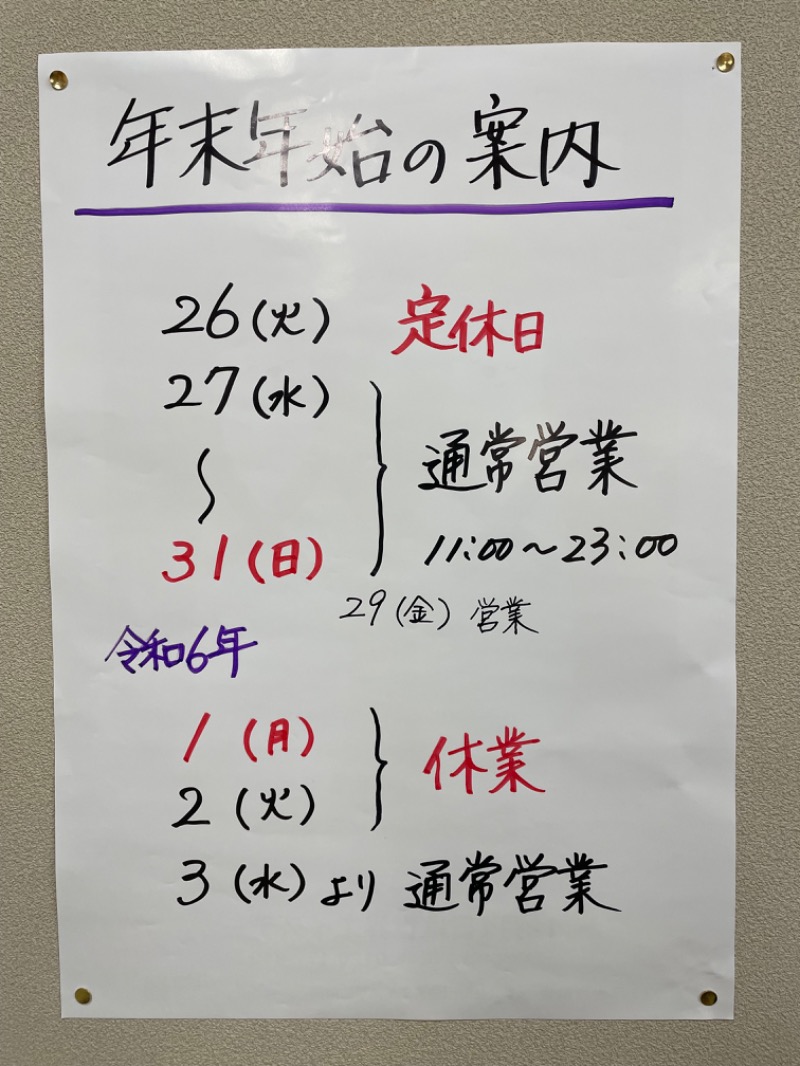 年末年始の案内
26(火) 定休日
27(水)
〜
31(日)
通常営業
11:00〜23:00
29(金) 営業
令和6年
1(月)
2(火)
休業
3(水)より 通常営業